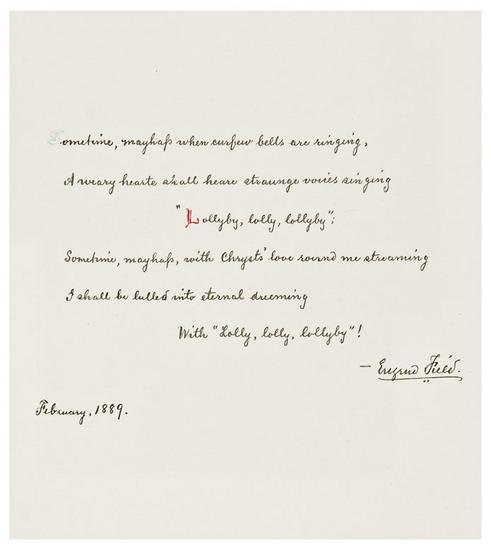 Sometime, mayhap when curfew bells are ringing,
A weary hearte shall heare straunge voices singing
"Lollyby, lolly, lollyby";
Sometime, mayhap, with Chrysts' love round me streaming
I shall be lulled into eternal dreeming
With "Lolly, lolly, lollyby"!
– Eugene Field.
February, 1889.